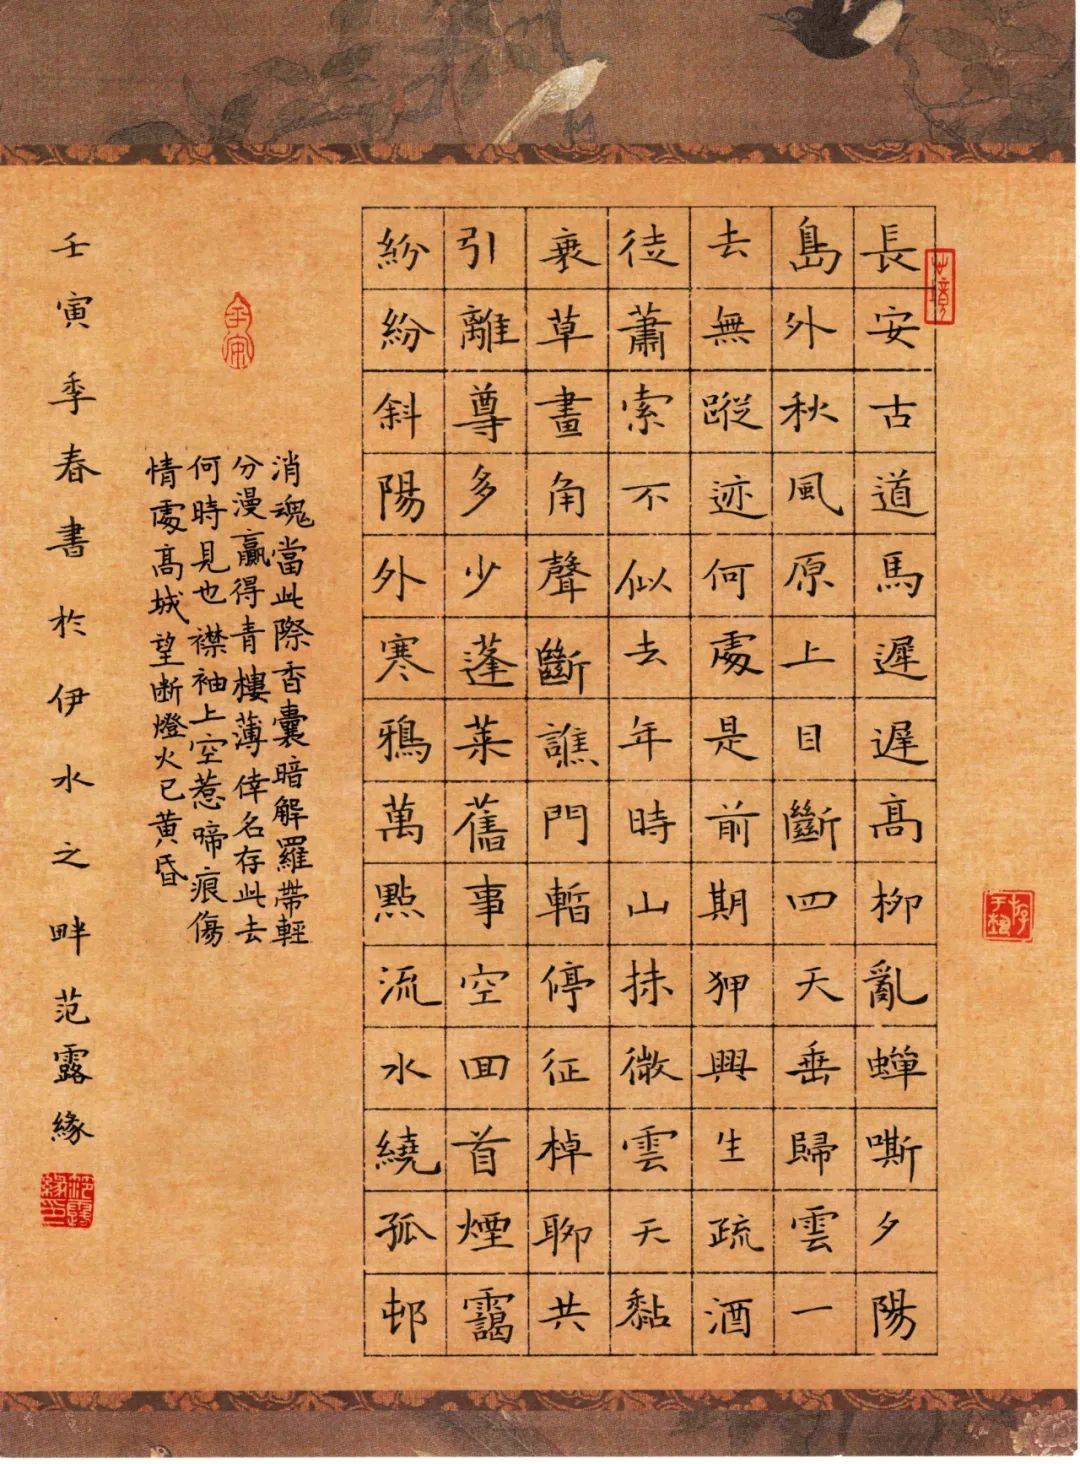 長安古道馬遲遲高柳亂蟬嘶夕陽
島外秋風原上目斷四天垂歸雲一
去無蹤迹何處是前期狎興生疏酒
徒蕭索不似去年時山抹微雲天黏
衰草畫角聲斷譙門暫停征棹聊共
引離尊多少蓬萊舊事空回首煙靄
紛紛斜陽外寒鴉萬點流水繞孤邨
消魂當此際香囊暗解羅帶輕
分漫贏得青樓薄倖名存此去
何時見也襟袖上空惹啼痕傷
情處高城望断燈火已黃昏
壬寅季春書於伊水之畔范露緣